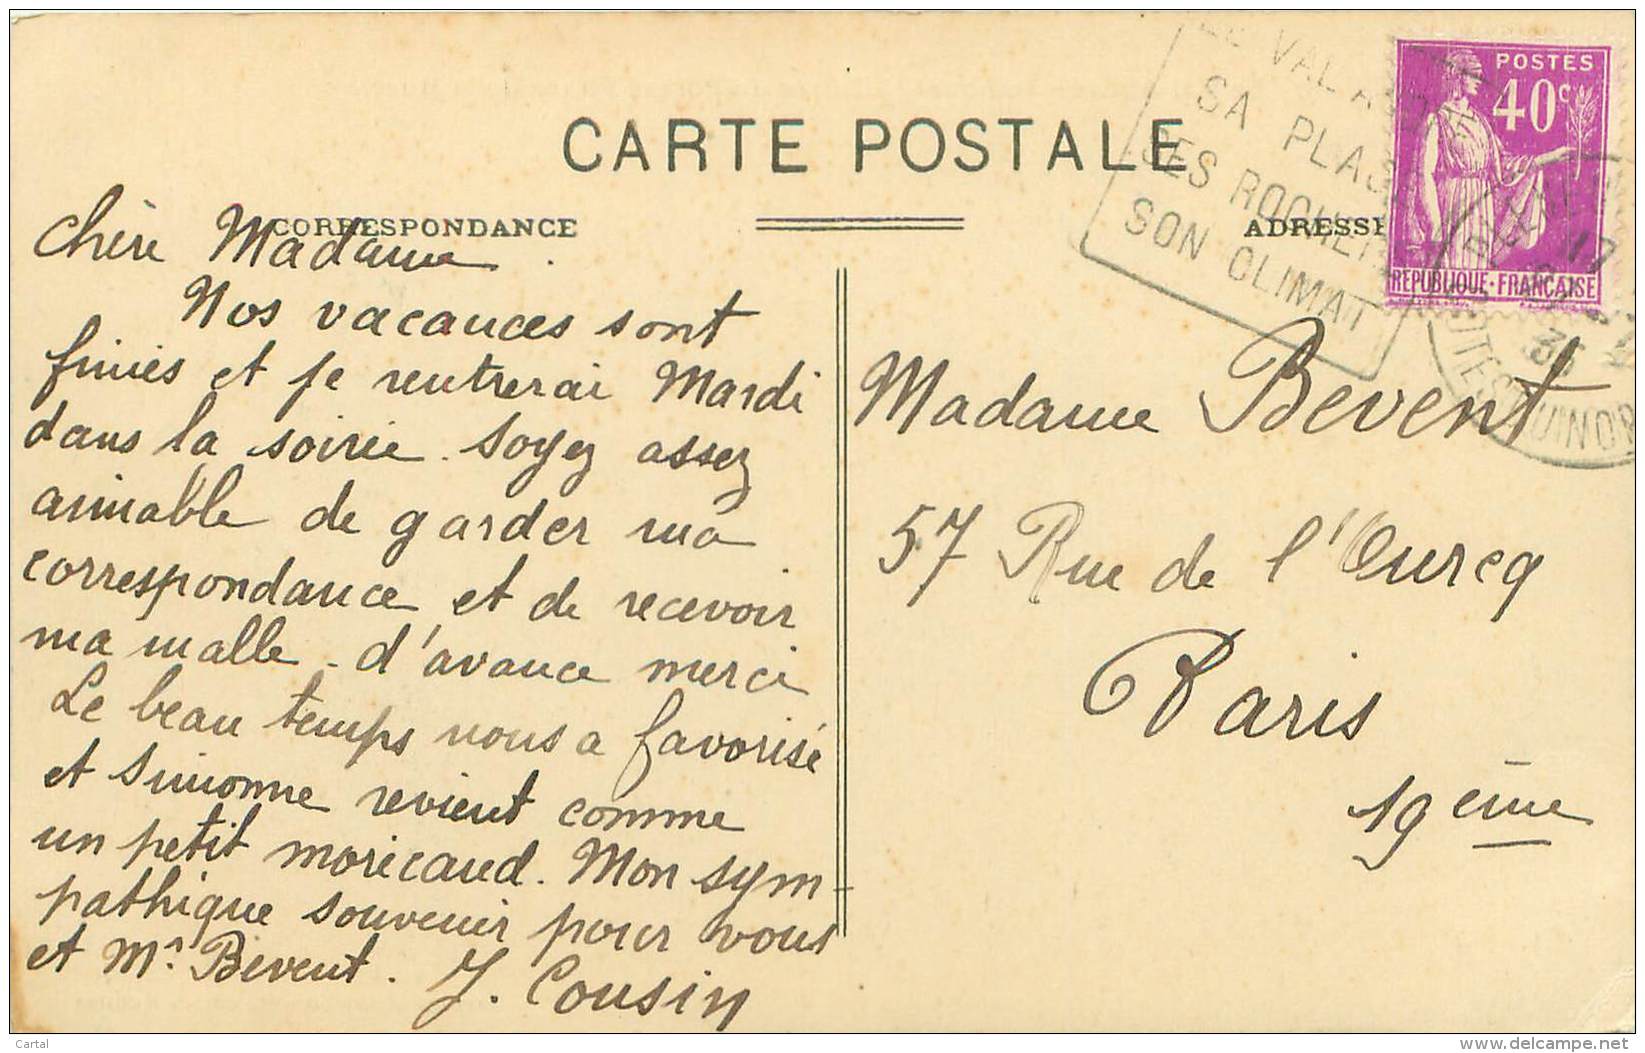 CARTE POSTALE
CORRESPONDANCE
ADRESSE
LE VAL ANDRÉ
SA PLAGE
SES ROCHERS
SON CLIMAT
POSTES
40c
REPUBLIQUE·FRANÇAISE
17
35
CÔTES DU NORD
Chère Madame.
Nos vacances sont
finies et je rentrerai Mardi
dans la soirée. Soyez assez
aimable de garder ma
correspondance et de recevoir
ma malle - d'avance merci
Le beau temps nous a favorisé
et Simonne revient comme
un petit moricaud. Mon sym-
pathique souvenir pour vous
et Mr. Bevent. J. Cousin
Madame Bevent
57 Rue de l'Ourcq
Paris
19 ème
Cartal
www.delcampe.net